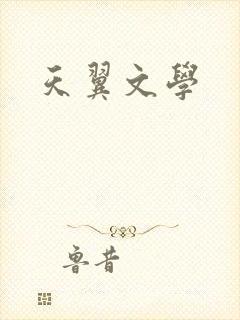 天翼文學
魯昔